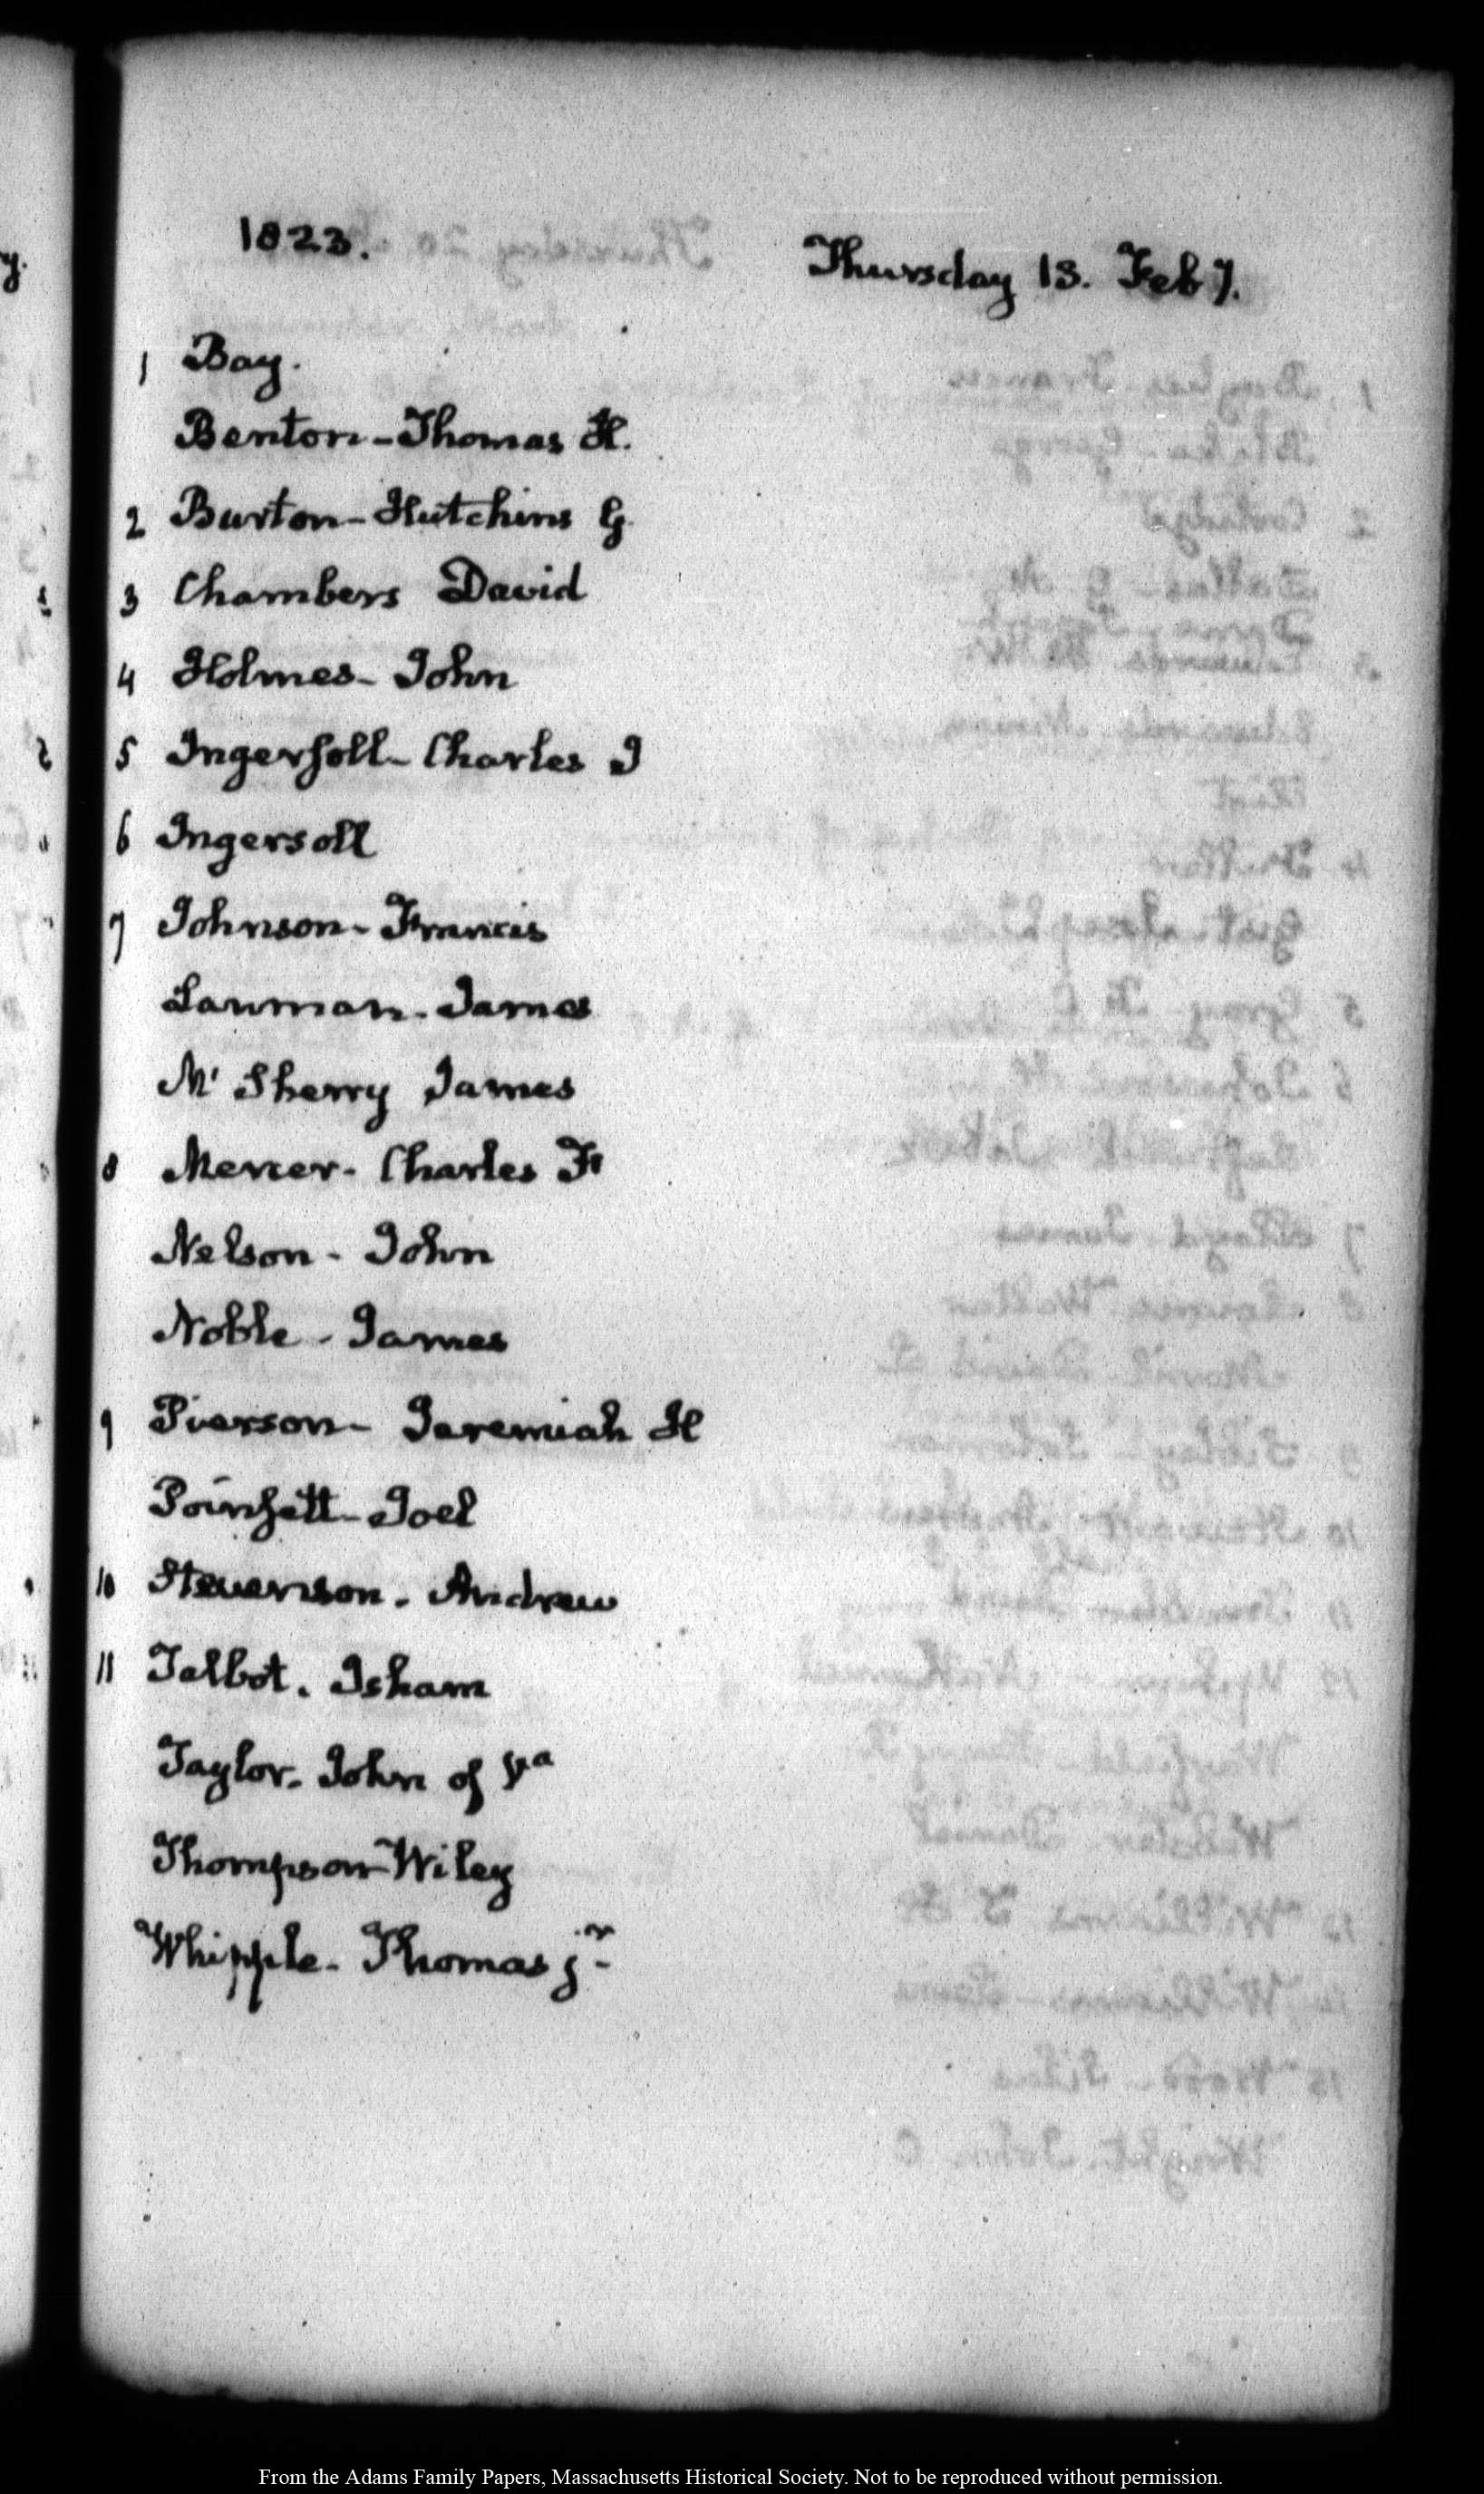 1823.
Thursday 13. Feby.
1 Bay.
Benton-Thomas H.
2 Burton-Hutchins G.
3 Chambers David
4 Holmes-John
5 Ingersoll-Charles J
6 Ingersoll
7 Johnson-Francis
Lanman-James
Mc Sherry James
8 Mercer-Charles F
Nelson-John
Noble-James
9 Pierson-Jeremiah H
Poinsett-Joel
10 Stevenson. Andrew
11 Talbot. Isham
Taylor. John of Va
Thompson-Wiley
Whipple-Thomas jr-
From the Adams Family Papers, Massachusetts Historical Society. Not to be reproduced without permission.